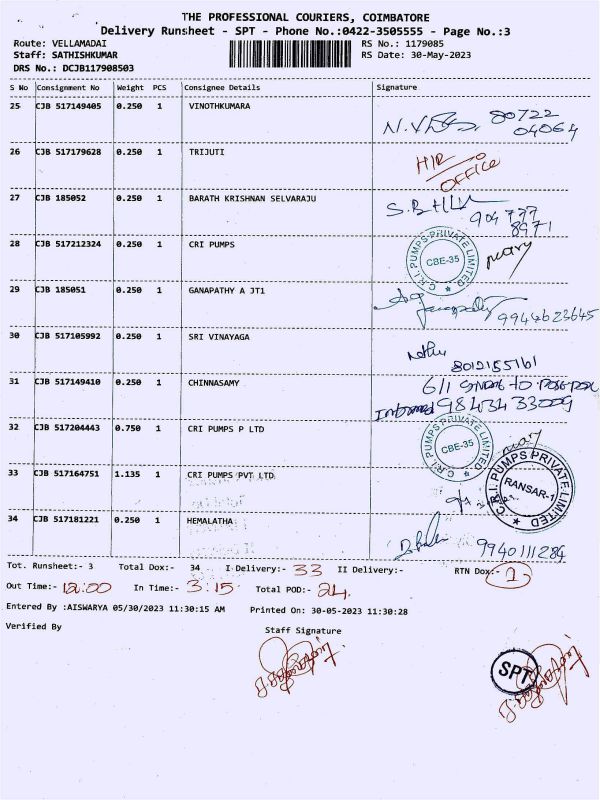 THE PROFESSIONAL COURIERS, COIMBATORE
Delivery Runsheet - SPT - Phone No.:0422-3505555 - Page No.:3
Route: VELLAMADAI RS No.: 1179085
Staff: SATHISHKUMAR RS Date: 30-May-2023
DRS No.: DCJB117908503
S No Consignment No Weight PCS Consignee Details Signature
25 CJB 517149405 0.250 1 VINOTHKUMARA 80722
04064
26 CJB 517179628 0.250 1 TRIJUTI H/R
OFFICE
27 CJB 185052 0.250 1 BARATH KRISHNAN SELVARAJU 904777
8971
28 CJB 517212324 0.250 1 CRI PUMPS C.R.I. PUMPS PRIVATE LIMITED CBE-35
29 CJB 185051 0.250 1 GANAPATHY A JT1 9944623645
30 CJB 517105992 0.250 1 SRI VINAYAGA 8012155161
31 CJB 517149410 0.250 1 CHINNASAMY 611
9843433009
32 CJB 517204443 0.750 1 CRI PUMPS P LTD C.R.I. PUMPS PRIVATE LIMITED CBE-35
33 CJB 517164751 1.135 1 CRI PUMPS PVT LTD C.R.I. PUMPS PRIVATE LIMITED RANSAR-1
34 CJB 517181221 0.250 1 HEMALATHA 9940111284
Tot. Runsheet:- 3 Total Dox:- 34 I Delivery:- 33 II Delivery:- RTN Dox:- 1
Out Time:- 12:00 In Time:- 3:15 Total POD:- 24
Entered By :AISWARYA 05/30/2023 11:30:15 AM Printed On: 30-05-2023 11:30:28
Verified By Staff Signature
SPT